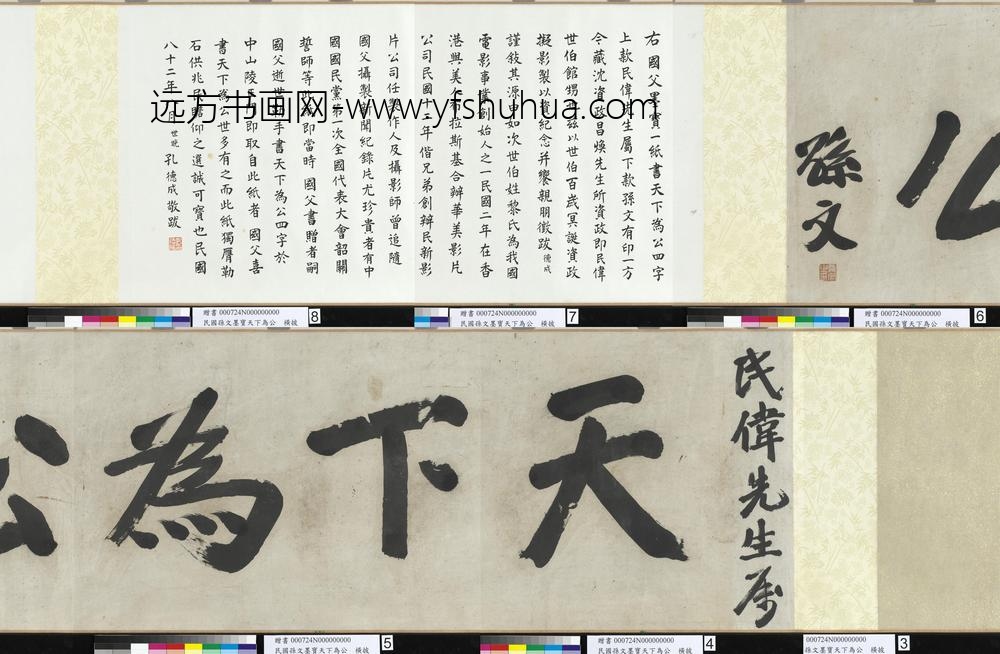 民偉先生属
天下為公
孫文
右 國父墨寶一紙書天下為公四字
上款民偉先生屬下款孫文有印一方
今藏沈資政昌煥先生所資政即民偉
世伯館甥也茲以世伯百歲冥誕資政
擬影製以資紀念并饗親朋徵跋德成
謹敘其源由如次世伯姓黎氏為我國
電影事業創始人之一民國二年在香
港與美布拉斯基合辦華美影片
公司民國十二年偕兄弟創辦民新影
片公司任製作人及攝影師曾追隨
國父攝製新聞紀錄片尤珍貴者有中
國國民黨第一次全國代表大會韶關
誓師等即當時 國父書贈者嗣
國父逝世手書天下為公四字於
中山陵即取自此紙者 國父喜
書天下為公世多有之而此紙獨膺勒
石供兆瞻仰之選誠可寶也民國
八十二年月世晚 孔德成敬跋
远方书画网-www.yfshuhua.com
贈書 000724N000000000 8
民國孫文墨寶天下為公 橫披
贈書 000724N000000000 7
民國孫文墨寶天下為公 橫披
贈書 000724N000000000 6
民國孫文墨寶天下為公 橫披
贈書 000724N000000000 5
民國孫文墨寶天下為公 橫披
贈書 000724N000000000 4
民國孫文墨寶天下為公 橫披
000724N000000000 3
民國孫文墨寶天下為公 橫披